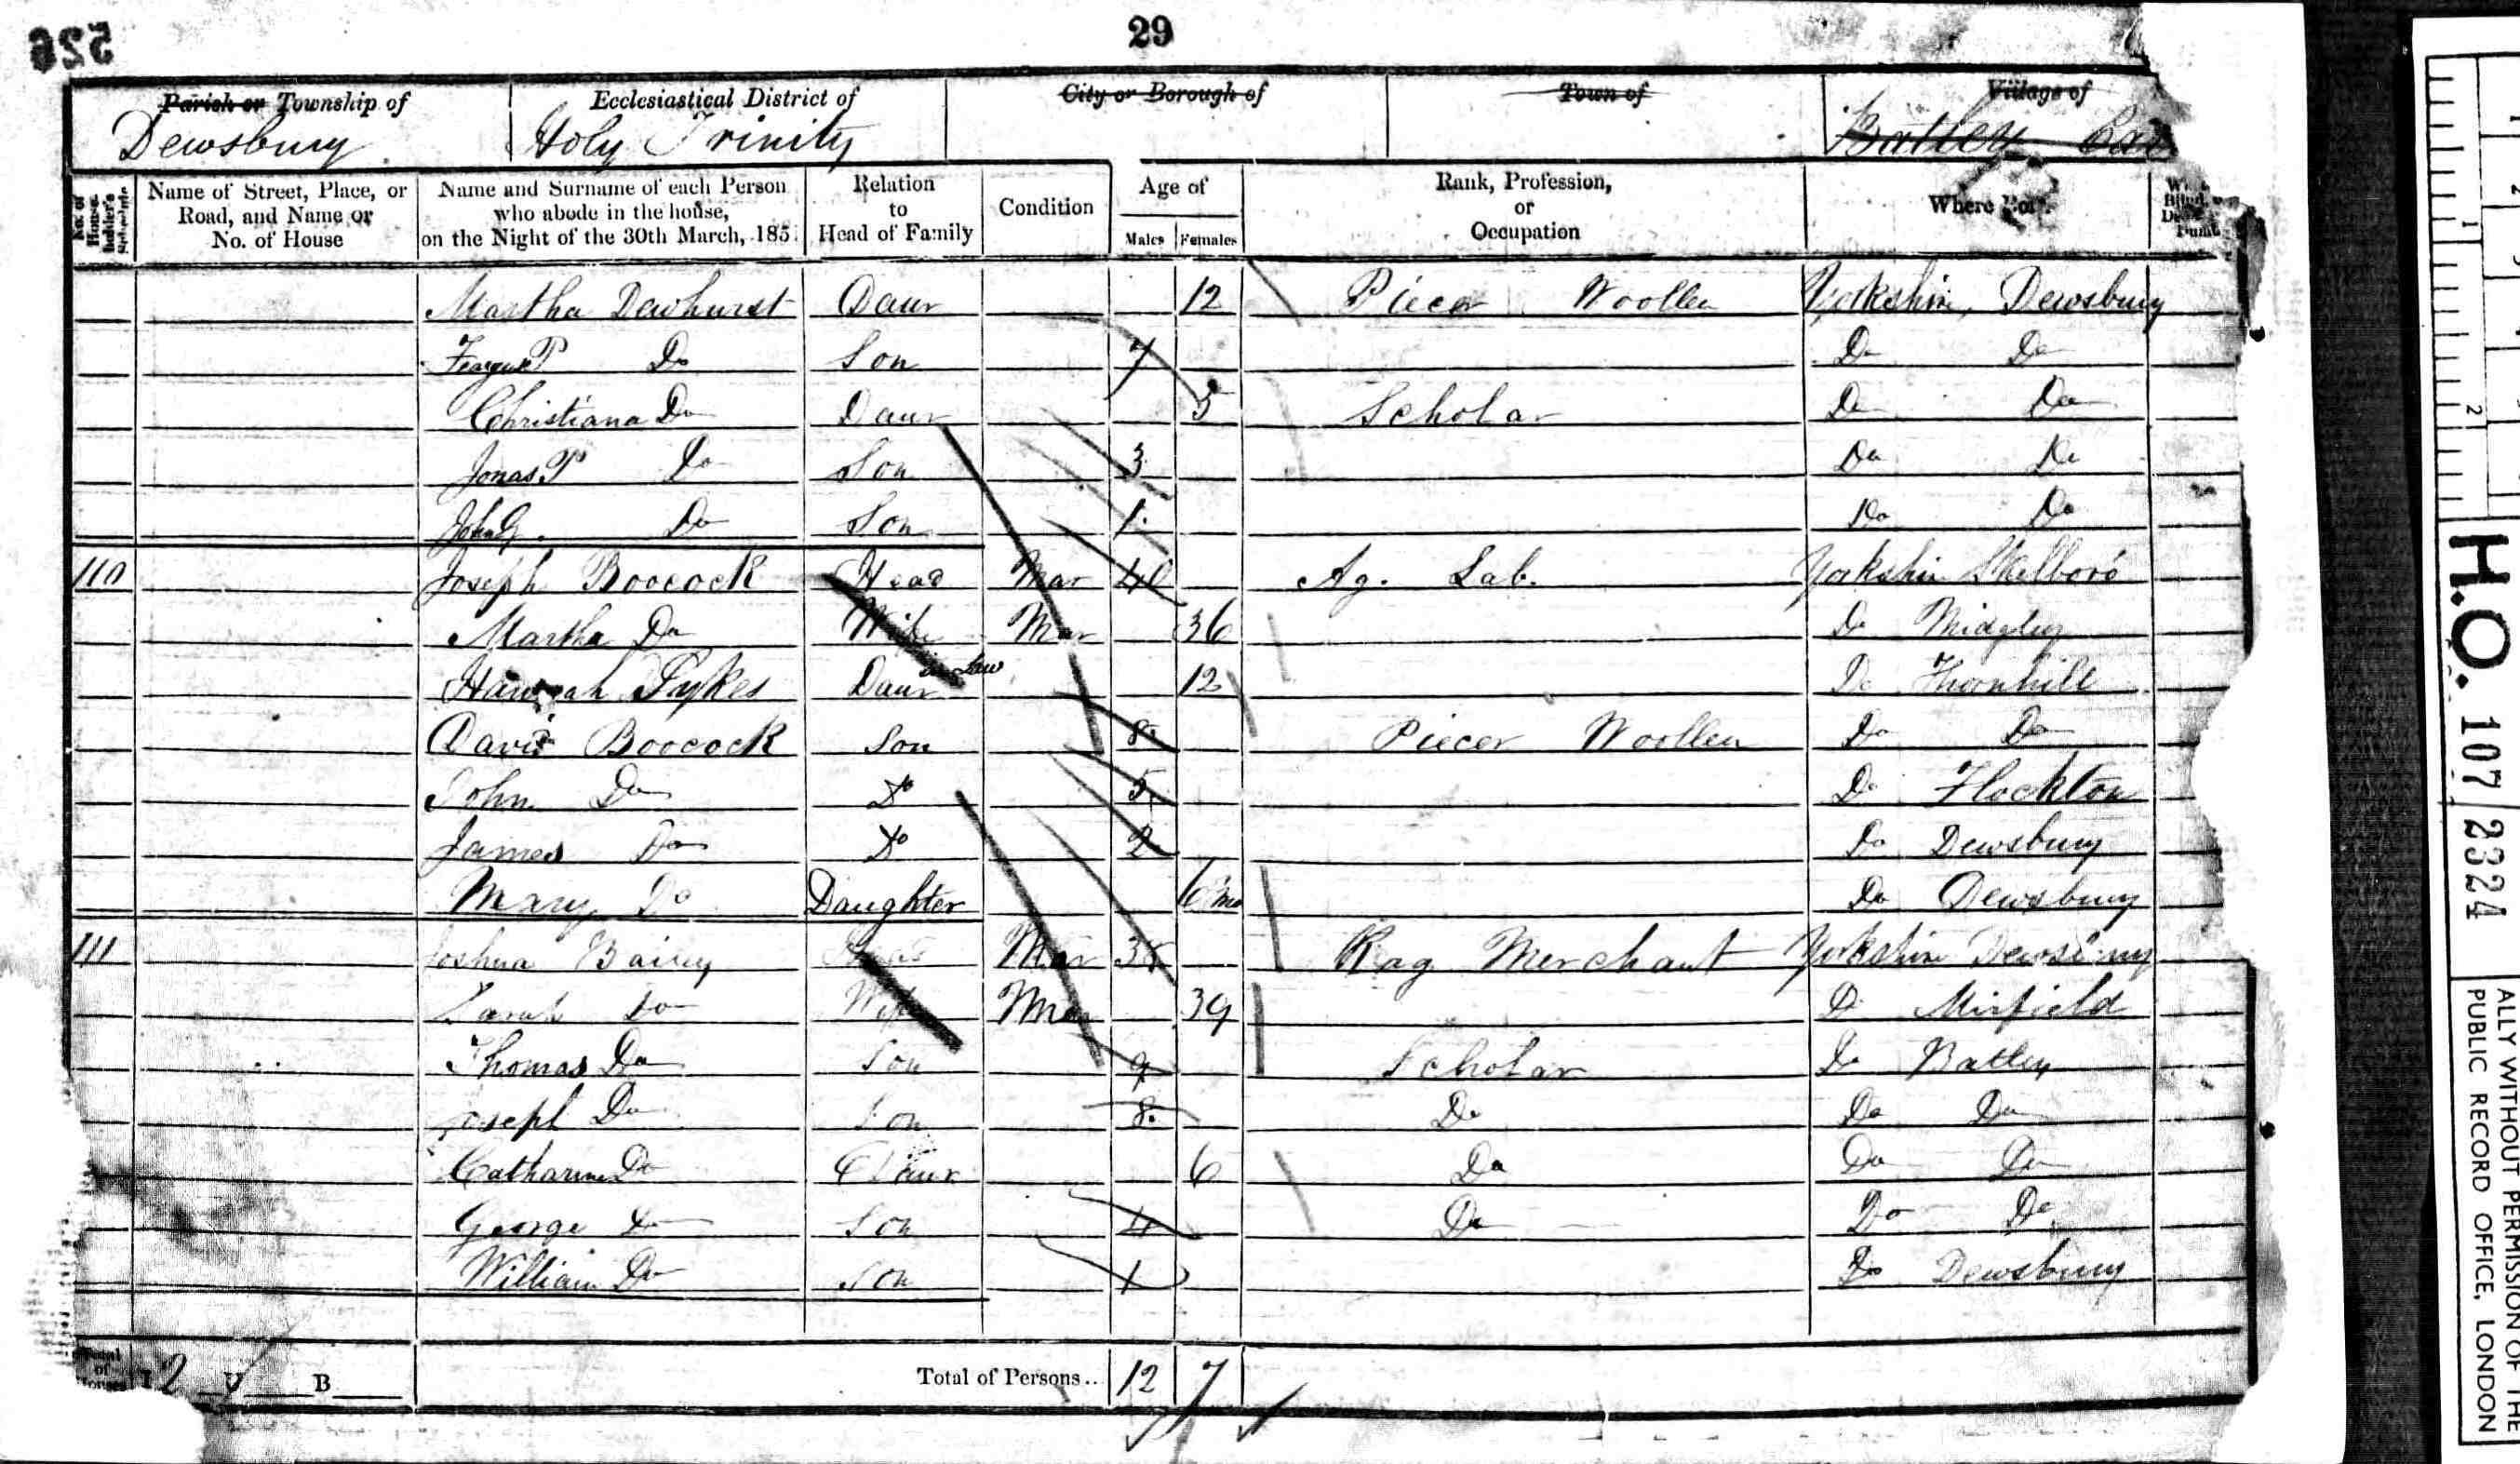 526
29
Parish or Township of
Dewsbury
Ecclesiastical District of
Holy Trinity
City or Borough of
Town of
Village of
Batley Car
No. of House-holder's Schedule
Name of Street, Place, or Road, and Name or No. of House
Name and Surname of each Person who abode in the house, on the Night of the 30th March, 185
Relation to Head of Family
Condition
Age of
Males Females
Rank, Profession, or Occupation
Where
Martha Dewhurst Daur 12 Piecer Woollen Yorkshire, Dewsbury
P Do Son 7 Do Do
Christiana Do Daur 5 Scholar Do Do
Jonas P Do Son 3 Do Do
John G. Do Son 1 Do Do
110 Joseph Boocock Head Mar 40 Ag. Lab. Yorkshire Skelbro'
Martha Do Wife Mar 36 Do Midgley
Hannah Sykes Daur in Law 12 Do Thornhill
David Boocock Son 8 Piecer Woollen Do Do
John Do Do 5 Do Flockton
James Do Do 2 Do Dewsbury
Mary Do Daughter 6 mo Do Dewsbury
111 Joshua Bailey Head Mar Rag Merchant Yorkshire Dewsbury
Sarah Do Wife Mar 39 Do Mirfield
Thomas Do Son 9 Scholar Do Batley
Joseph Do Son 8 Do Do Do
Catharine Do Daur 6 Do Do Do
George Do Son 4 Do Do Do
William Do Son 1 Do Dewsbury
Total of Houses I 2 U B
Total of Persons.. 12 7
H.O. 107/2324
ALLY WITHOUT PERMISSION OF THE
PUBLIC RECORD OFFICE, LONDON